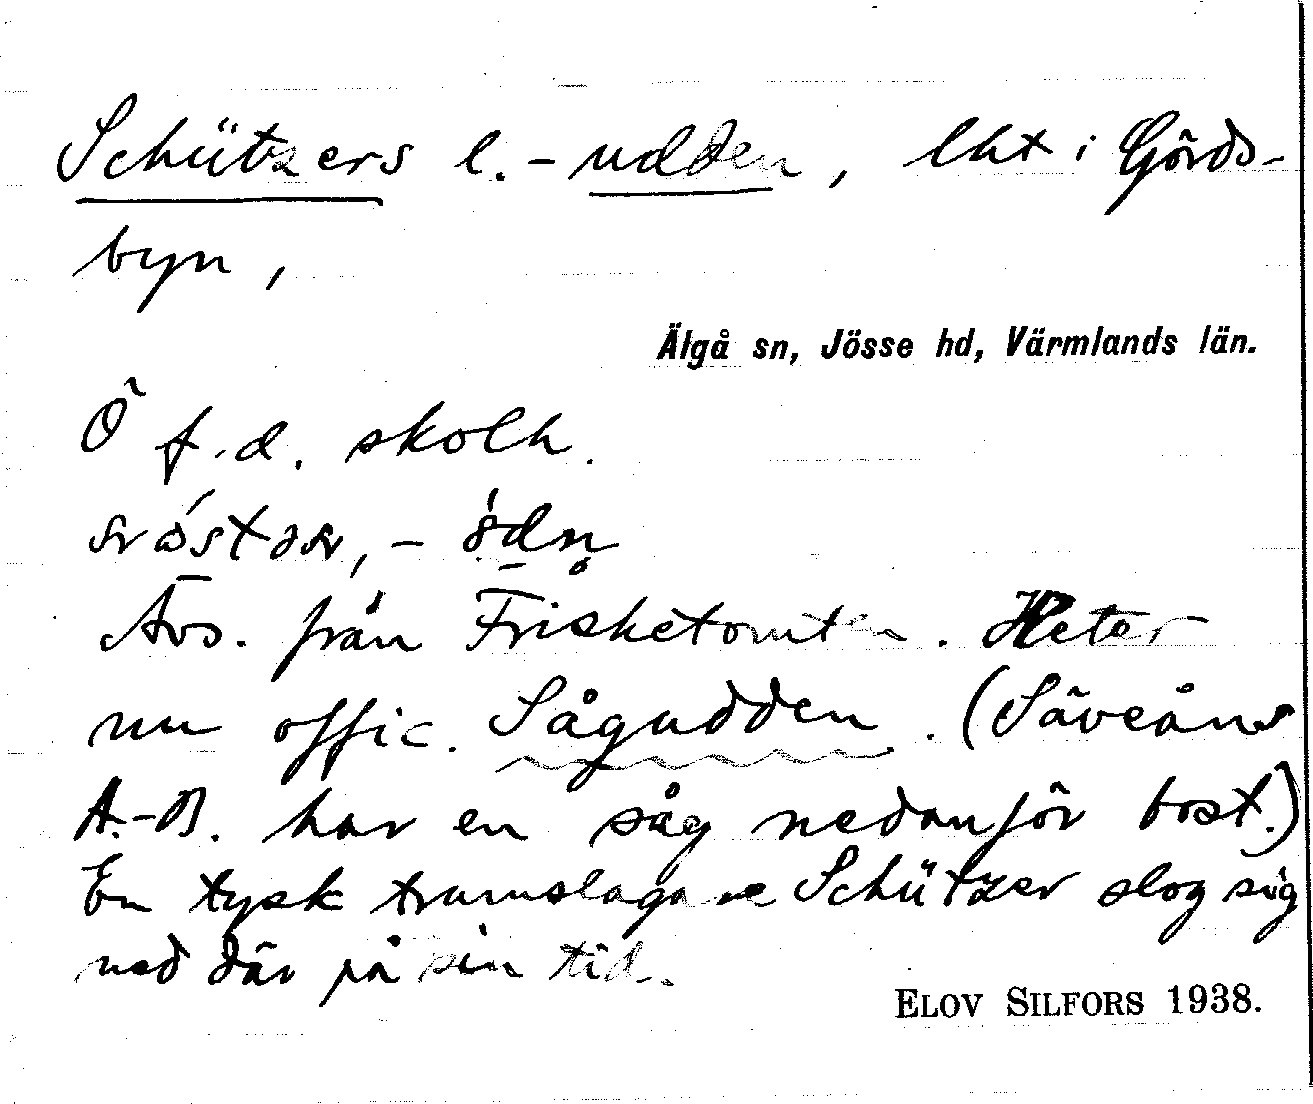 Schützers l. -udden, lht i Görds-
byn,
Älgå sn, Jösse hd, Värmlands län.
Ö f.d. skolh.
Avs. från Frisketomten. Heter
nu offic. Sågudden. (Säveåns
A.-B. har en såg nedanför bost.)
En tysk trumslagare Schützer slog sig
ned där på sin tid.
ELOV SILFORS 1938.